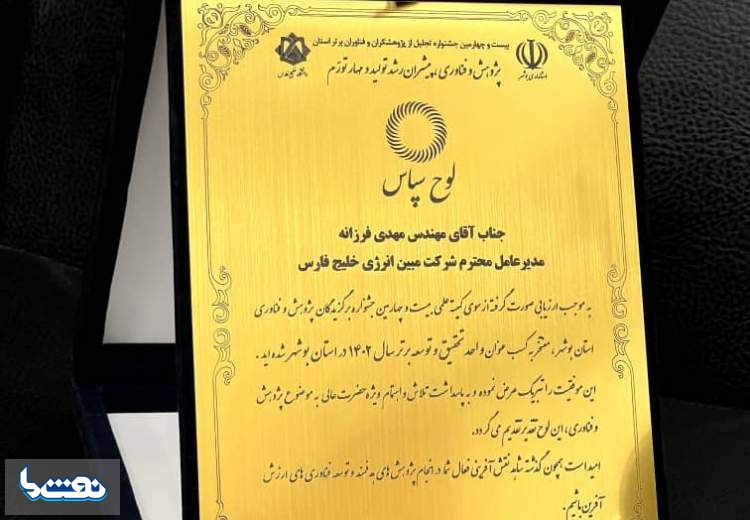 بیست و چهارمین جشنواره تجلیل از پژوهشگران و فناوران برتر استان
پژوهش و فناوری، پیشران رشد تولید و مهار تورم
استانداری بوشهر
دانشگاه خلیج فارس
لوح سپاس
جناب آقای مهندس مهدی فرزانه
مدیرعامل محترم شرکت مبین انرژی خلیج فارس
به موجب ارزیابی صورت گرفته از سوی کمیته علمی بیست و چهارمین جشنواره برگزیدگان پژوهش و فناوری
استان بوشهر، مفتخر به کسب عنوان واحد تحقیق و توسعه برتر سال ۱۴۰۲ در استان بوشهر شده اید.
این موفقیت را تبریک عرض نموده و به پاسداشت تلاش و اهتمام ویژه حضرت عالی به موضوع پژوهش
و فناوری، این لوح تقدیر تقدیم می گردد.
امید است همچون گذشته شاهد نقش آفرینی فعال شما در انجام پژوهش های هدفمند و توسعه فناوری های ارزش
آفرین باشیم.
نفت ما